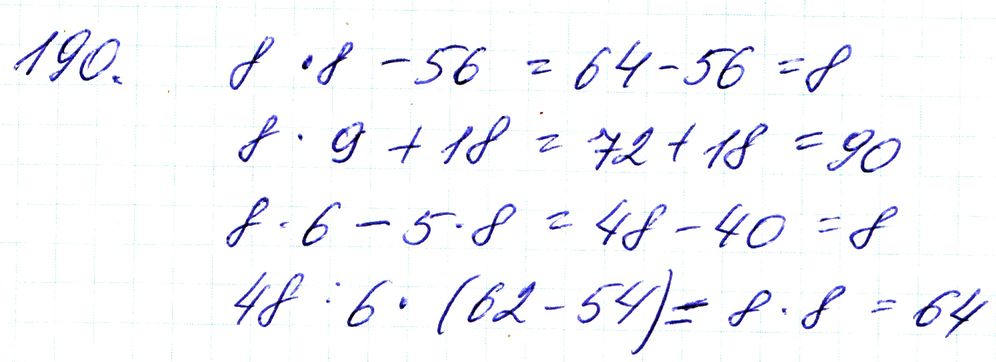 190. 8 · 8 - 56 = 64 - 56 = 8
8 · 9 + 18 = 72 + 18 = 90
8 · 6 - 5 · 8 = 48 - 40 = 8
48 : 6 · (62 - 54) = 8 · 8 = 64